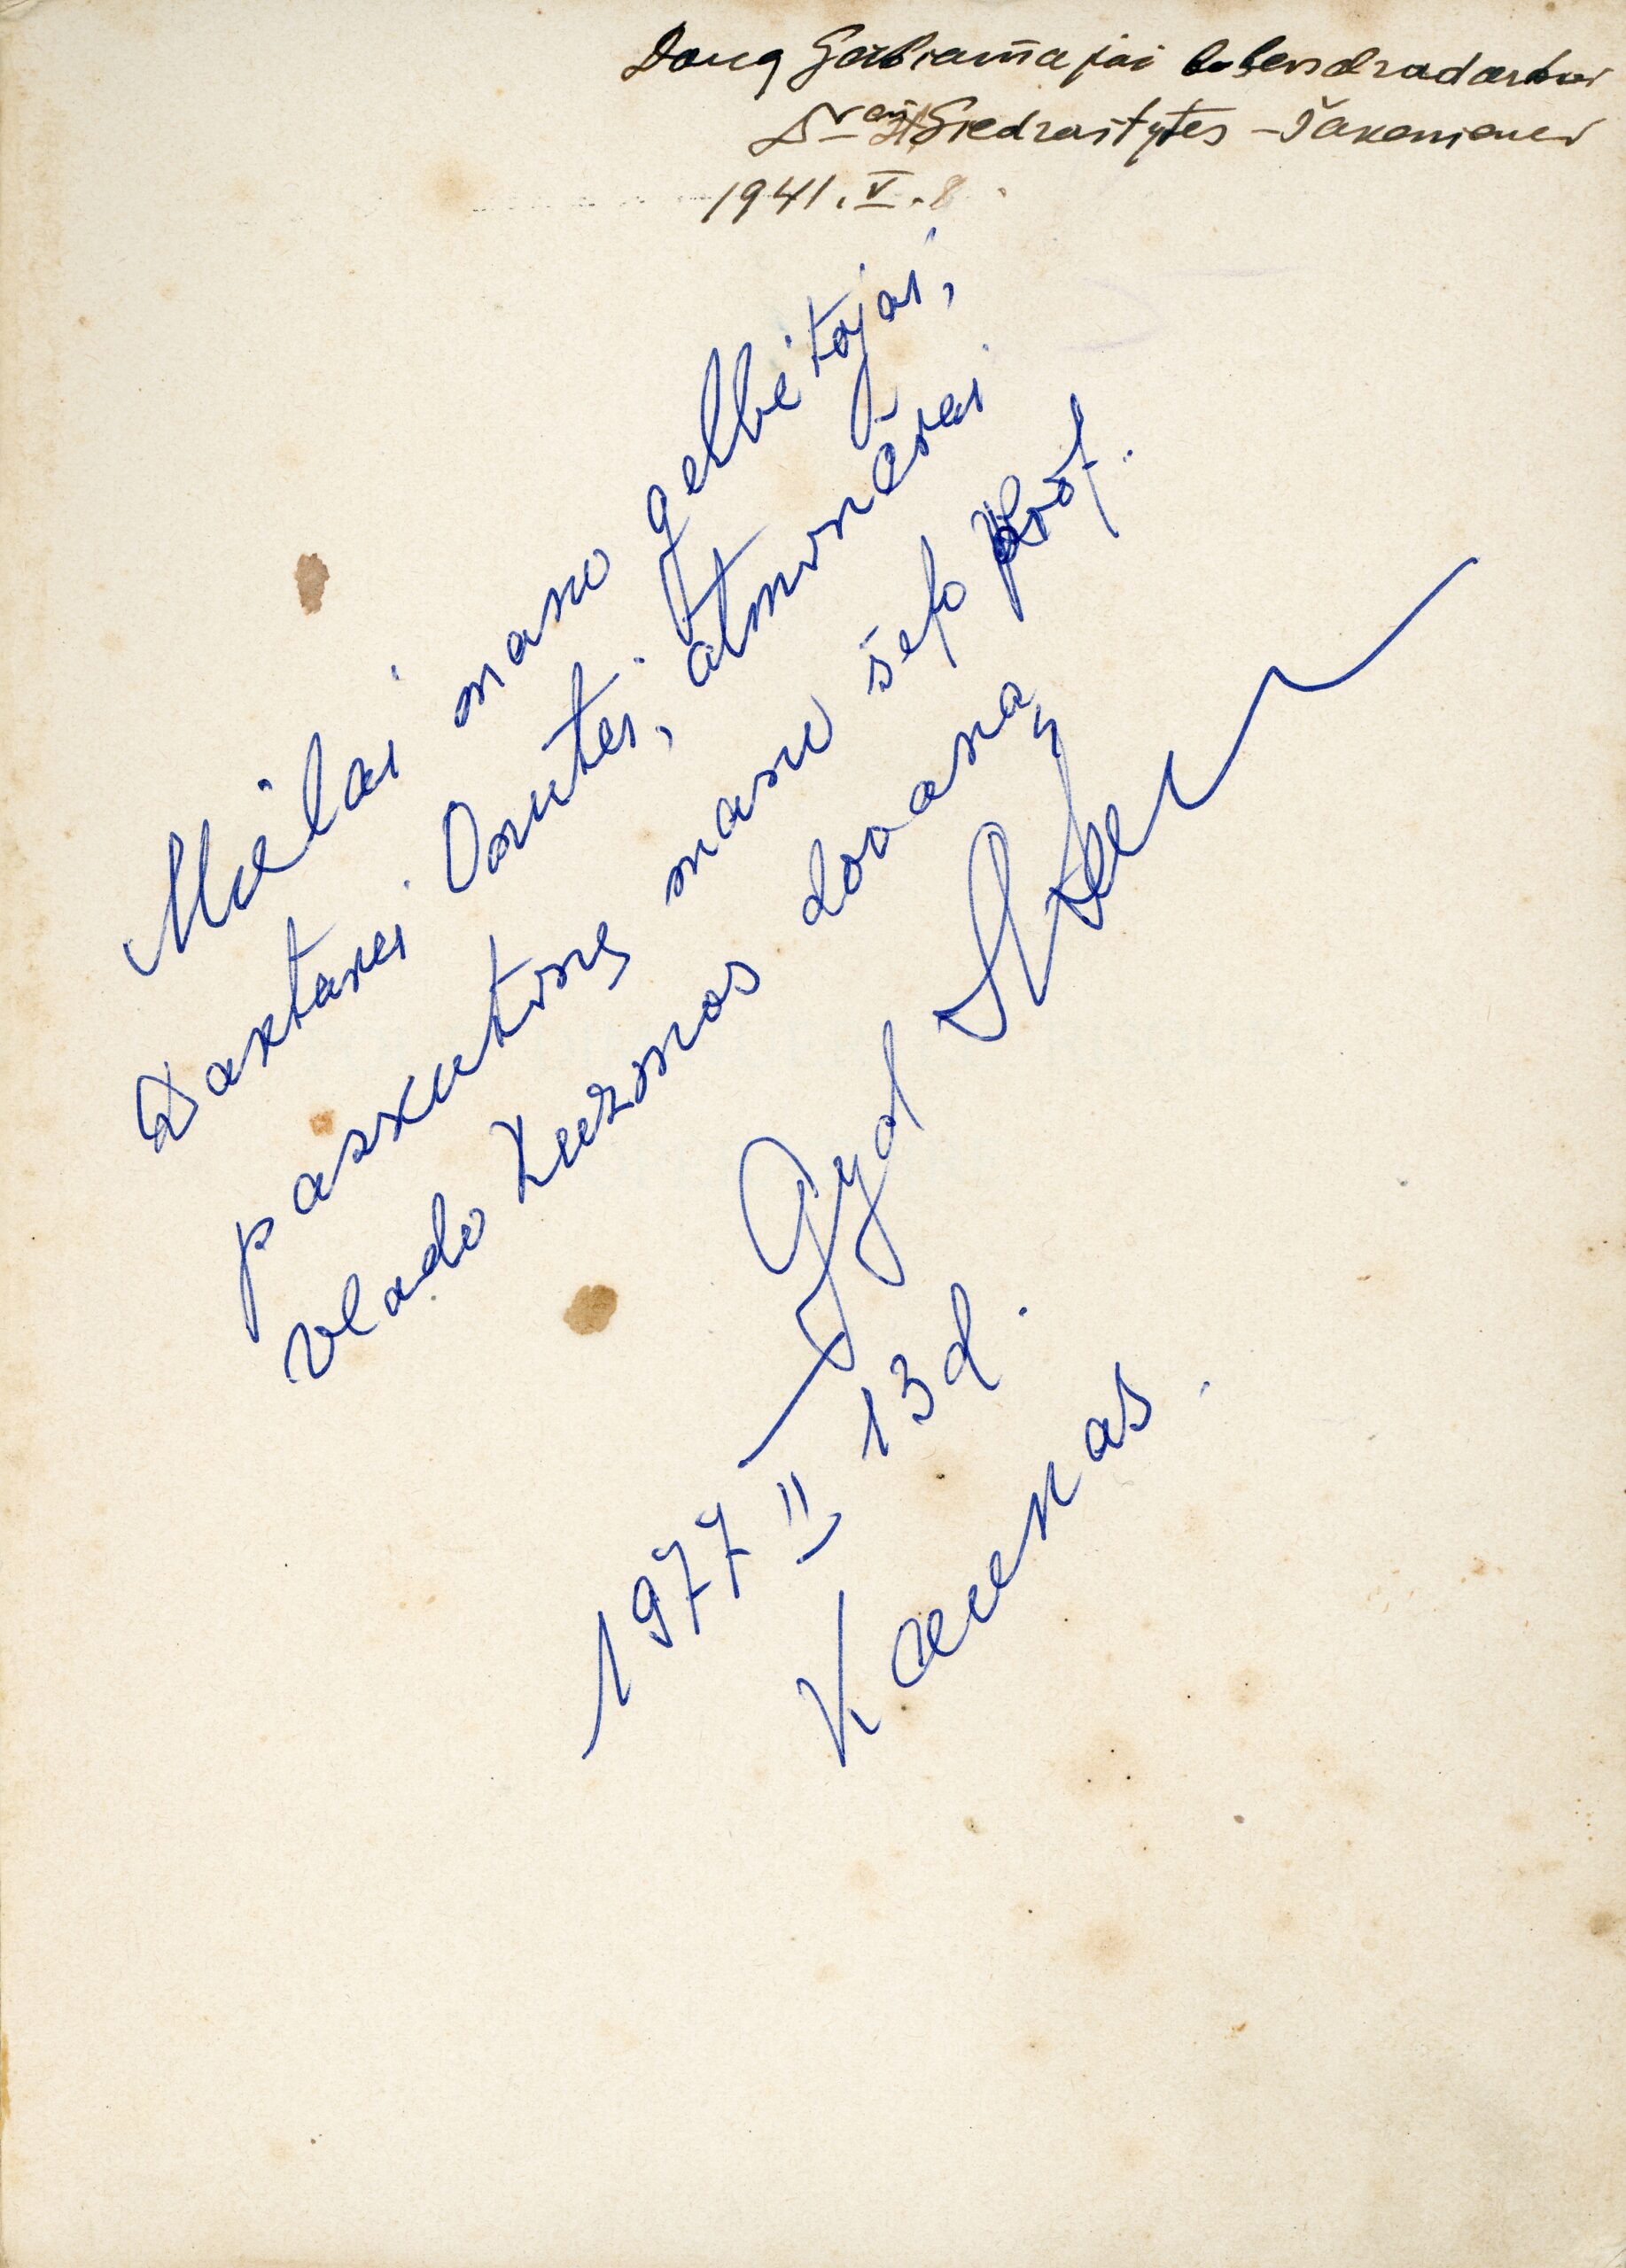 Daug Gerbiamajai bebendradarbei
Giedraitytės - Šakenienei
1941. V. 8.
Mielai mano gelbėtojai,
Daktarei Onutei, atminčiai
paskutinę mano šefo Prof.
Vlado Kuzmos dovaną
Gyd
1977 II 13 d.
Kaunas.